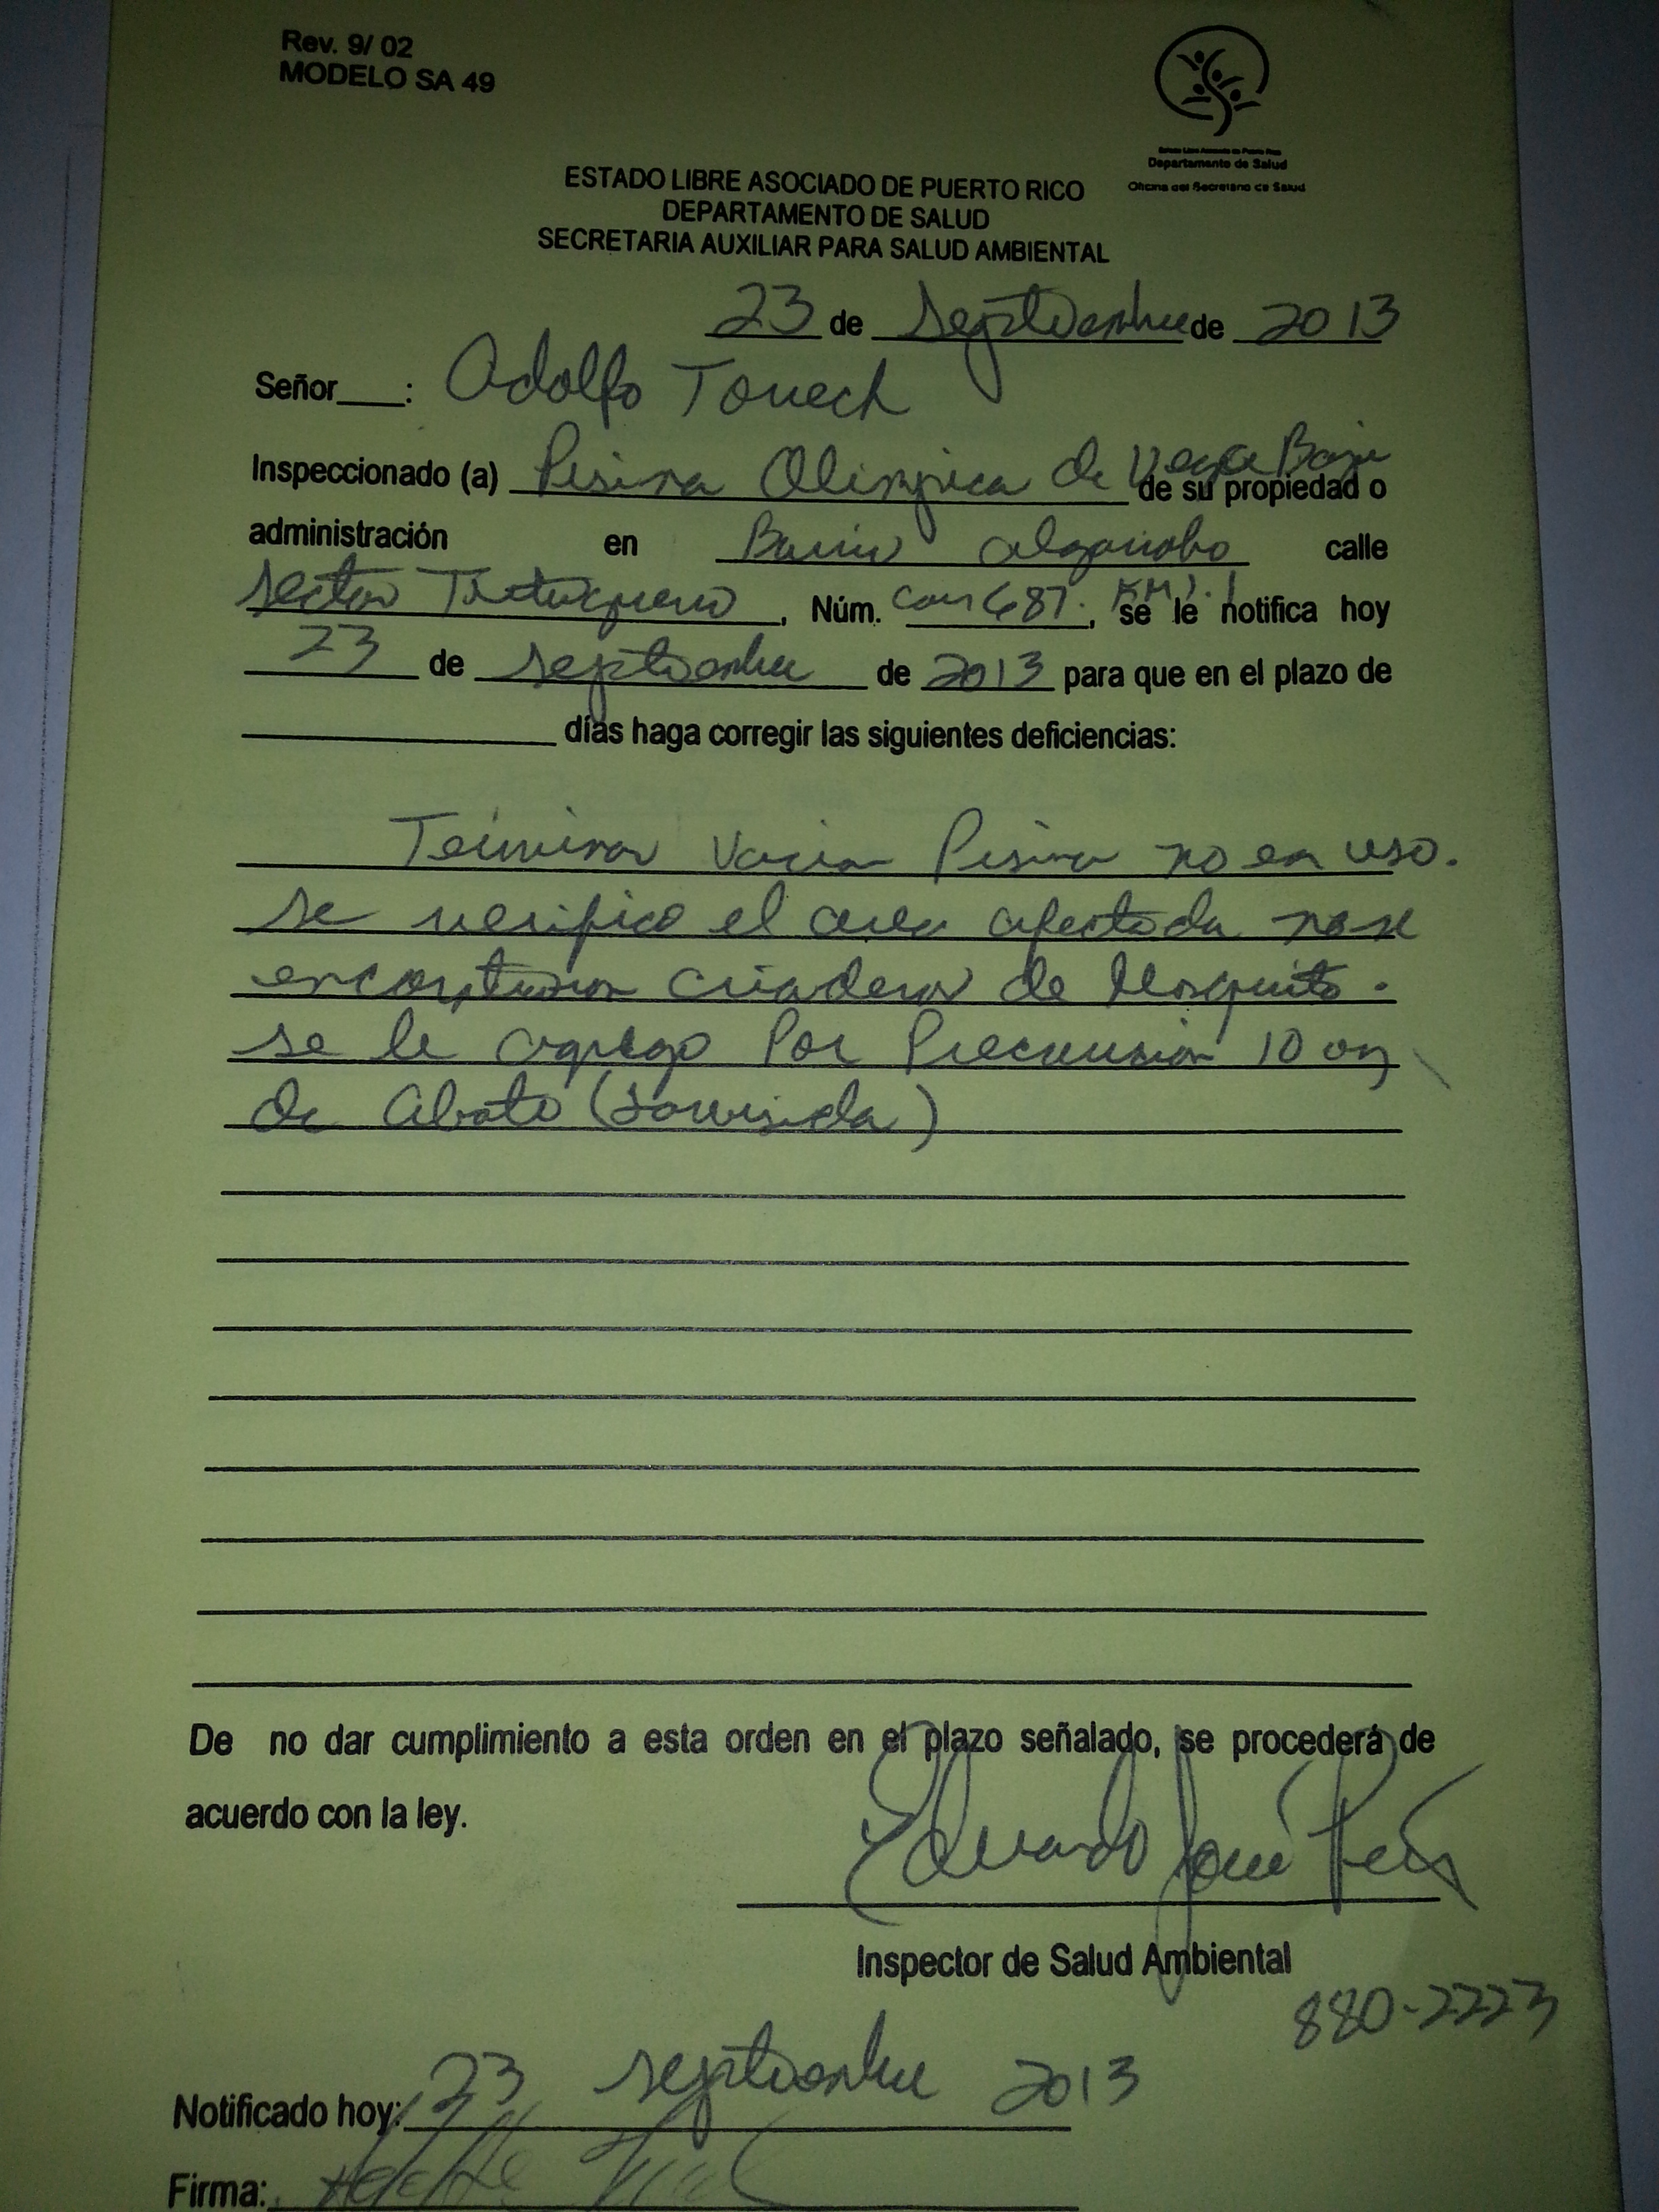 Rev. 9/ 02
MODELO SA 49
Estado Libre Asociado de Puerto Rico
Departamento de Salud
Oficina del Secretario de Salud
ESTADO LIBRE ASOCIADO DE PUERTO RICO
DEPARTAMENTO DE SALUD
SECRETARIA AUXILIAR PARA SALUD AMBIENTAL
23 de Septiembre de 2013
Señor___: Adolfo
Inspeccionado (a) Pisina Olimpica de Vega Baja de su propiedad o
administración en Barrio algarrobo calle
Sector , Núm. Carr 687. KM 1.1, se le notifica hoy
23 de septiembre de 2013 para que en el plazo de
días haga corregir las siguientes deficiencias:
Terminar Vaciar Pisina no en uso.
se verifico el area afectada no se
encontraron criaderos de Mosquito.
se le agrego Por Precausion 10 oz
de Abate (Larvisida)
De no dar cumplimiento a esta orden en el plazo señalado, se procederá de
acuerdo con la ley.
Eduardo
Inspector de Salud Ambiental
880-2223
Notificado hoy: 23 septiembre 2013
Firma: